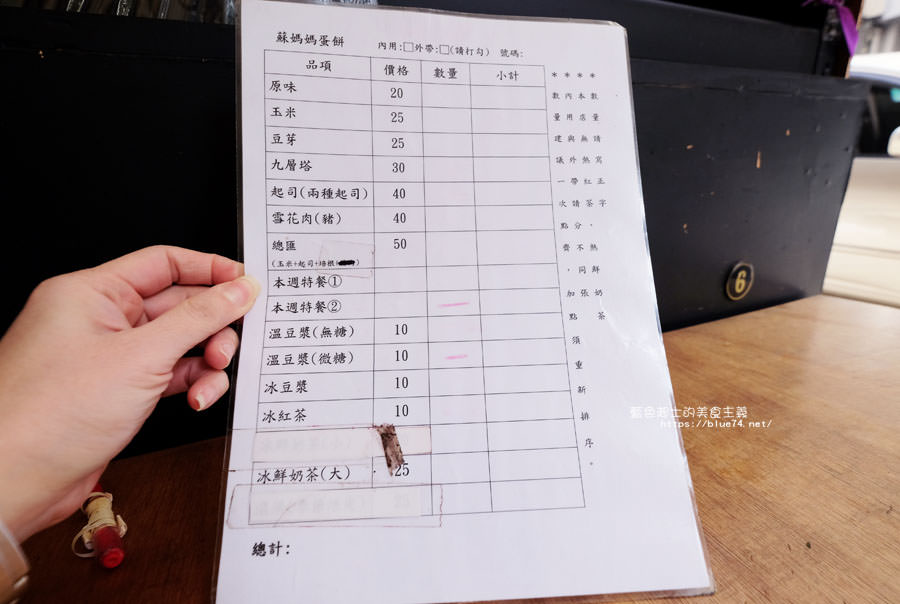 蘇媽媽蛋餅 內用:□外帶:□(請打勾) 號碼:
品項 價格 數量 小計
原味 20
玉米 25
豆芽 25
九層塔 30
起司(兩種起司) 40
雪花肉(豬) 40
總匯 50
(玉米+起司+培根+
本週特餐①
本週特餐②
溫豆漿(無糖) 10
溫豆漿(微糖) 10
冰豆漿 10
冰紅茶 10
冰鮮奶茶(大) 25
總計:
****
數量請寫正字,熱鮮奶茶
本店無熱紅茶,不同張
內用與外帶請分
數量建議一次點齊,加點須重新排序。
6
藍色起士的美食主義
https://blue74.net/